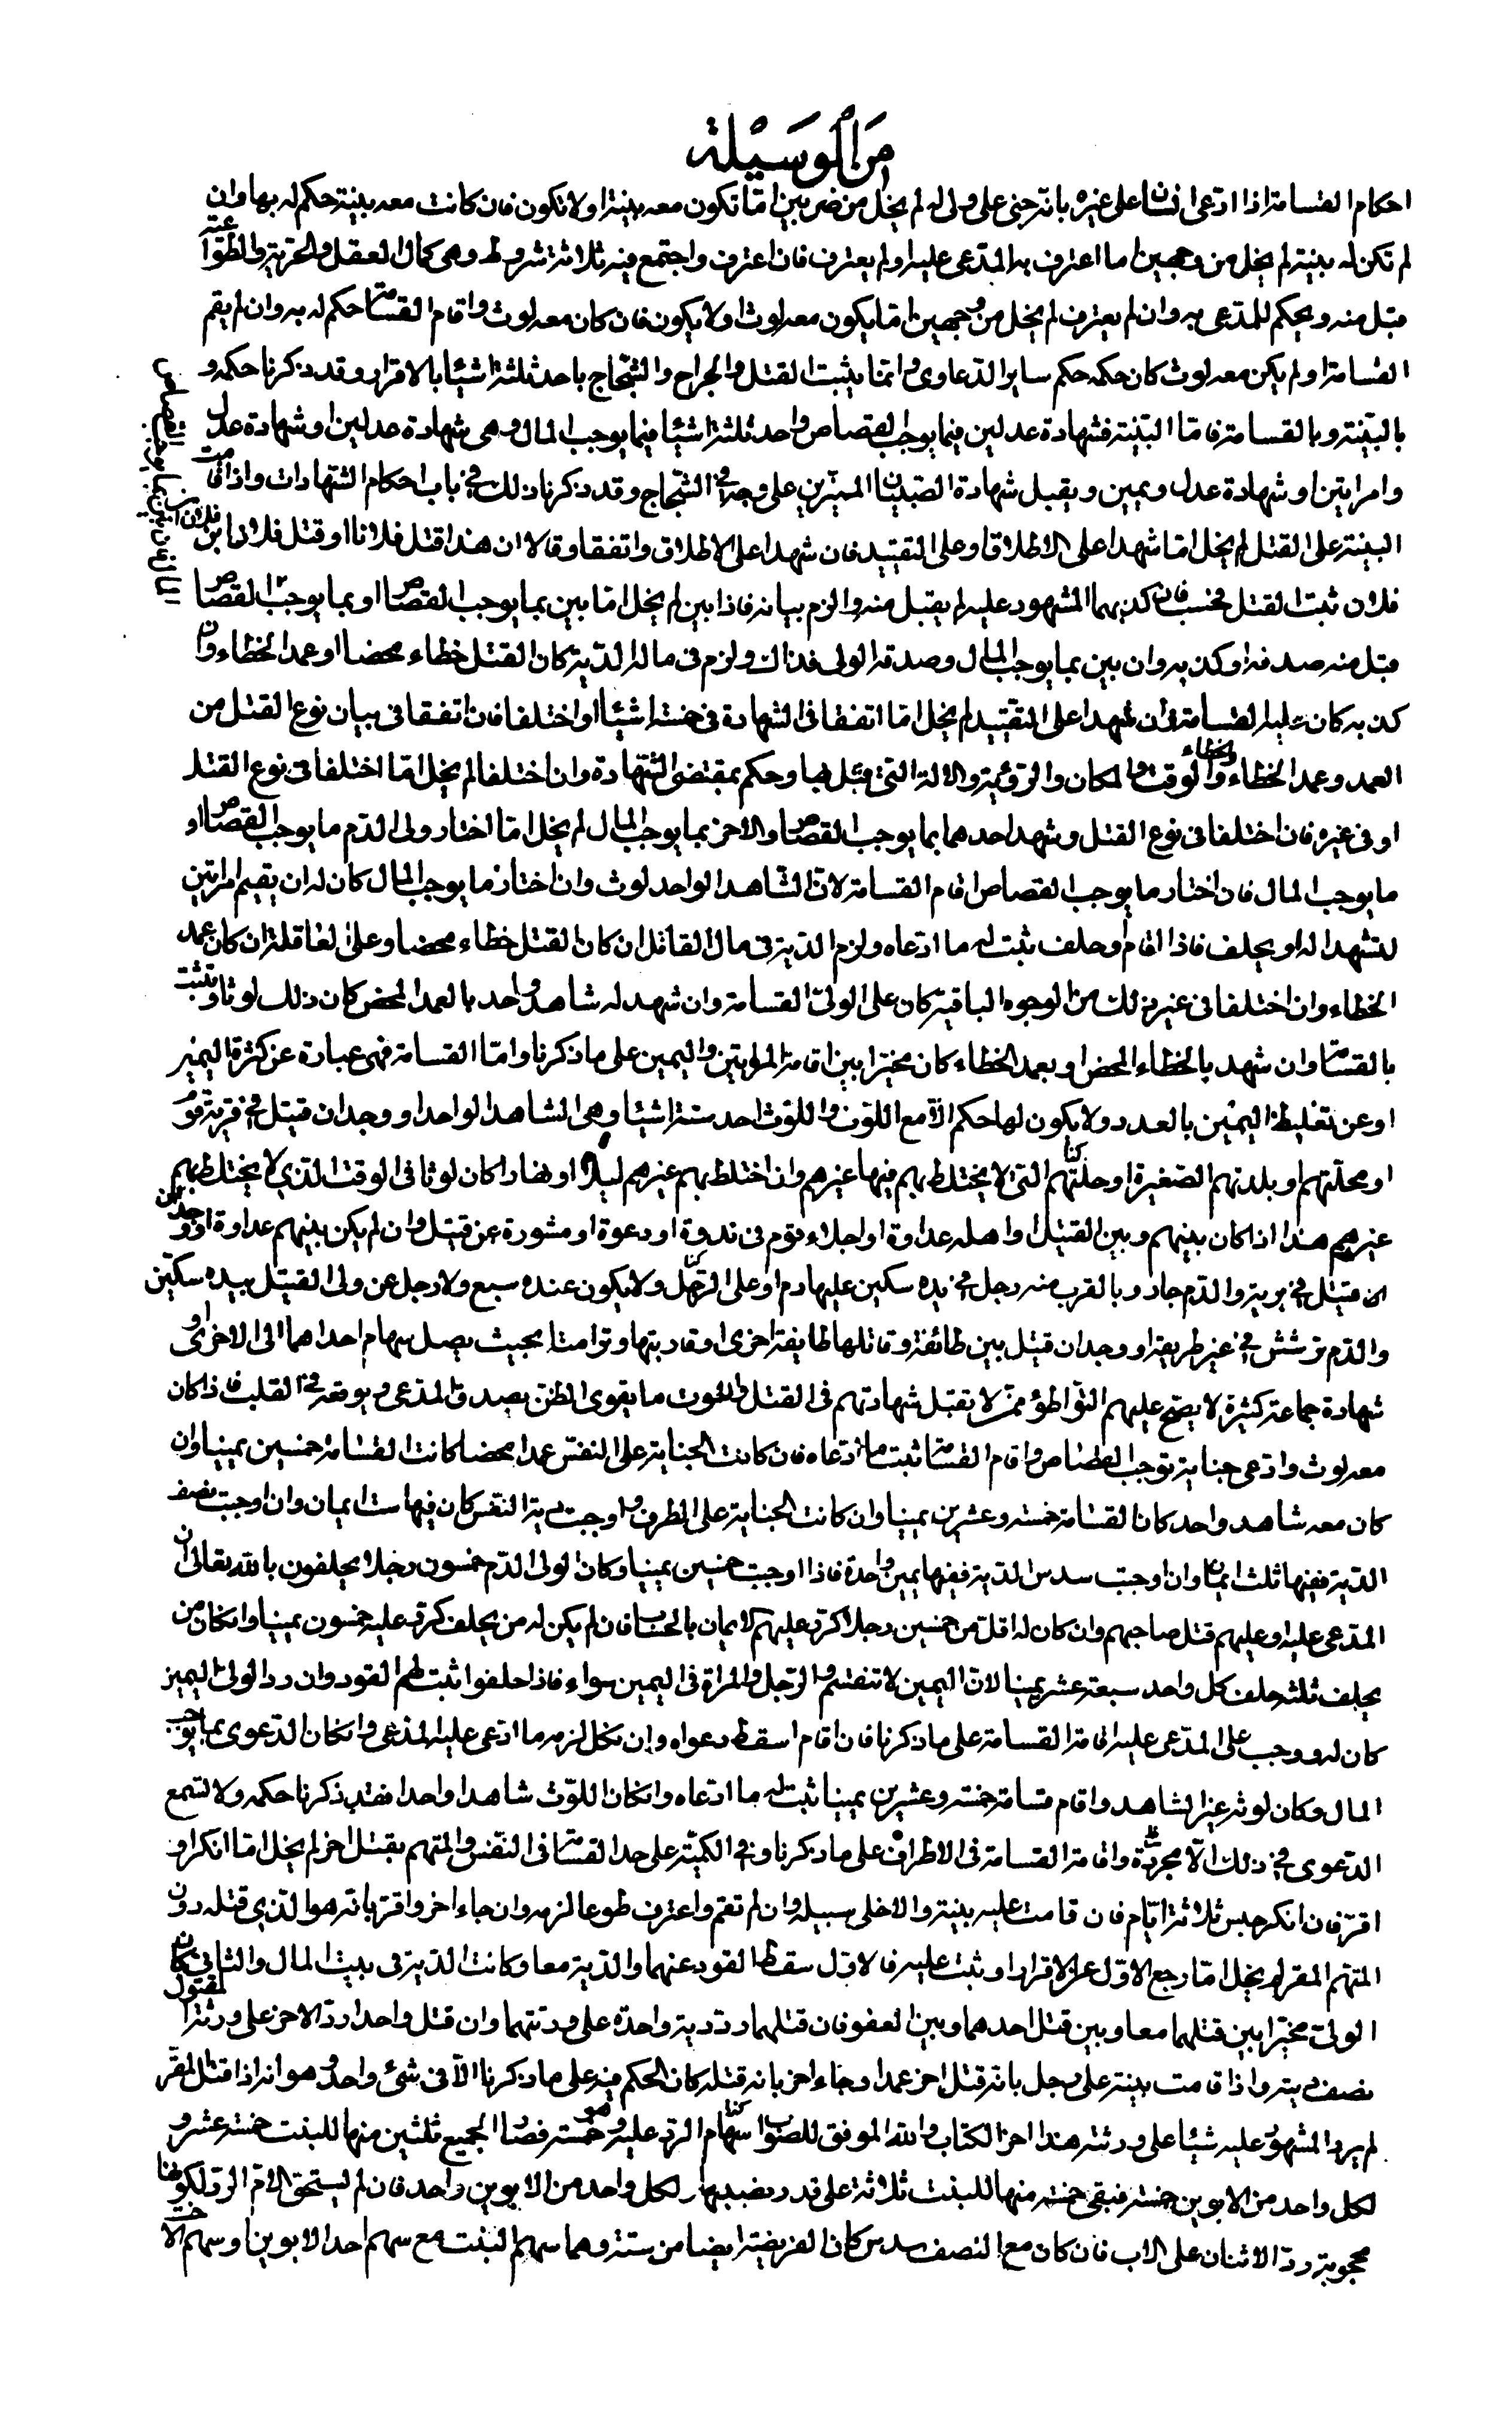 من الوسيلة
احكام القسامة اذا ادعى انسان على غيره بانه جنى على ولى له لم يخل من ضربين اما تكون معه بينة او لا تكون فان كانت معه بينة حكم له بها وان
لم تكن له بينة لم يخل من وجهين اما اعترف به المدعى عليه او لم يعترف فان اعترف واجتمع فيه ثلاثة شروط وهى كمال العقل والحرية والطواعية
قبل منه ويحكم للمدعى به وان لم يعترف لم يخل من وجهين اما يكون معه لوث او لا يكون فان كان معه لوث واقام القسامة حكم له به وان لم يقم
القسامة او لم يكن معه لوث كان حكمه حكم ساير الدعاوى وانما يثبت القتل والجراح والشجاج باحد ثلثة اشياء بالاقرار وقد ذكرنا حكمه و
بالبينة وبالقسامة فاما البينة فشهادة عدلين فيما يوجب القصاص واحد ثلثة اشياء فيما يوجب المال وهى شهادة عدلين او شهادة عدل
وامراتين او شهادة عدل ويمين ويقبل شهادة الصبيان المميزين على وجه فى الشجاج وقد ذكرنا ذلك فى باب احكام الشهادات واذا قامت
البينة على القتل لم يخل اما شهدا على الاطلاق او على التقييد فان شهدا على الاطلاق واتفقا وقالا ان هذا قتل فلانا او قتل فلان ابن
فلان ثبت القتل فحسب فان كذبهما المشهود عليه لم يقبل منه والزم بيانه فاذا بين لم يخل اما بين بما يوجب القصاص او بما يوجب القصاص
قبل منه صدقه او كذبه وان بين بما يوجب المال وصدقه الولى فذاك ولزم فى ماله الدية كان القتل خطاء محضا او عمد الخطاء وان
كذبه كان عليه القسامة فان شهدا على التقييد لم يخل اما اتفقا فى الشهادة فى خمسة اشياء او اختلفا فان اتفقا فى بيان نوع القتل من
العمد وعمد الخطاء والخطاء والوقت والمكان والرؤية والالة التى قتل بها وحكم بمقتضى الشهادة وان اختلفا لم يخل اما اختلفا فى نوع القتل
او فى غيره فان اختلفا فى نوع القتل وشهد احدهما بما يوجب القصاص والاخر بما يوجب المال لم يخل اما اختار ولى الدم ما يوجب القصاص او
ما يوجب المال فان اختار ما يوجب القصاص اقام القسامة لان الشاهد الواحد لوث وان اختار ما يوجب المال كان له ان يقيم امراتين
لتشهدا له او يحلف فاذا اقام او حلف ثبت له ما ادعاه ولزم الدية فى مال القاتل ان كان القتل خطاء محضا وعلى العاقلة ان كان عمد
الخطاء وان اختلفا فى غير ذلك من الوجوه الباقية كان على الولى القسامة وان شهد له شاهد واحد بالعمد المحض كان ذلك لوثا وتثبت
بالقسامة وان شهد بالخطاء المحض او بعمد الخطاء كان مخيرا بين اقامة المراتين واليمين على ما ذكرنا واما القسامة فهى عبارة عن كثرة اليمين
او عن تغليظ اليمين بالعدد ولا يكون لها حكم الا مع اللوث واللوث احد ستة اشياء وهى الشاهد الواحد او وجدان قتيل فى قرية قوم
او محلتهم او بلدتهم الصغيرة او حلتهم التى لا يختلط بهم فيها غيرهم وان اختلط بهم غيرهم ليلا او نهارا كان لوثا فى الوقت الذى لا يختلط بهم
غيرهم هذا اذا كان بينهم وبين القتيل او اهله عداوة او اجلاء قوم فى ندوة او دعوة او مشورة عن قتيل وان لم يكن بينهم عداوة او وجدان
قتيل فى برية والدم جار وبالقرب منه رجل فى يده سكين عليها دم او على الرجل ولا يكون عنده سبع ولا رجل عن ولى القتيل بيده سكين
والدم ترشش فى غير طريقه او وجدان قتيل بين طائفة وقاتلها طايفة اخرى او قاربتها وترامتا بحيث يصل سهام احداهما الى الاخرى او
شهادة جماعة كثيرة لا يصح عليهم التواطؤ ممن لا يقبل شهادتهم فى القتل واللوث ما يقوى الظن بصدق المدعى ويوقعه فى القلب فاذا كان
معه لوث وادعى جناية توجب القصاص واقام القسامة ثبت ما ادعاه فان كانت الجناية على النفس عمدا محضا كانت القسامة خمسين يمينا وان
كان معه شاهد واحد كان القسامة خمسة وعشرين يمينا وان كانت الجناية على الطرف واوجبت دية النفس كان فيها ست ايمان وان اوجبت نصف
الدية ففيها ثلث ايمان وان اوجبت سدس الدية ففيها يمين واحدة فاذا اوجبت خمسين يمينا وكان لولى الدم خمسون رجلا يحلفون بالله تعالى ان
المدعى عليه او عليهم قتل صاحبهم وان كان له اقل من خمسين رجلا كرر عليهم الايمان بالحساب فان لم يكن له من يحلف كرر عليه خمسون يمينا وان كان من
يحلف ثلثة حلف كل واحد سبعة عشر يمينا لان اليمين لا تنقسم والرجل والمراة فى اليمين سواء فاذا حلفوا ثبت لهم القود وان رد الولى اليمين
كان له ووجب على المدعى عليه اقامة القسامة على ما ذكرنا فان اقام اسقط دعواه وان نكل لزمه ما ادعى عليه المدعى وان كان الدعوى بما يوجب
المال وكان لوثه غير الشاهد واقام قسامة خمسة وعشرين يمينا ثبت له ما ادعاه وان كان اللوث شاهدا واحدا فقد ذكرنا حكمه ولا تسمع
الدعوى فى ذلك الا محررة واقامة القسامة فى الاطراف على ما ذكرنا وفى الكمية على حد القسامة فى النفس والمتهم بقتل اخر لم يخل اما انكر او
اقر فان انكر حبس ثلاثة ايام فان قامت عليه بينة والا خلى سبيله وان لم تقم واعترف طوعا لزمه وان جاء اخر واقر بانه هو الذى قتله دون
المتهم المقر لم يخل اما رجع الاول عن الاقرار او ثبت عليه فالاول سقط القود عنهما والدية معا وكانت الدية فى بيت المال والثانى كان
الولى مخيرا بين قتلهما معا وبين قتل احدهما وبين العفو فان قتلهما رد دية واحدة على ورثتهما وان قتل واحدا رد الاخر على ورثة المقتول
نصف دية واذا قامت بينة على رجل بانه قتل اخر عمدا وجاء اخر بانه قتله كان الحكم فيه على ما ذكرنا الا فى شئ واحد وهو انه اذا قتل المقر
لم يرد المشهود عليه شيئا على ورثته هذا اخر الكتاب والله الموفق للصواب سهام الرد عليه وهو خمسة فصار الجميع ثلثين منها للبنت خمسة عشر و
لكل واحد من الابوين خمسة فبقى خمسة منها للبنت ثلاثة على قدر نصيبها ولكل واحد من الابوين واحد فان لم يستحق الام الرد لكونها
محجوبة رد الاثنان على الاب فان كان مع النصف سدس كان الفريضة ايضا من ستة وهما سهم البنت مع سهم احد الابوين او سهم الاخت